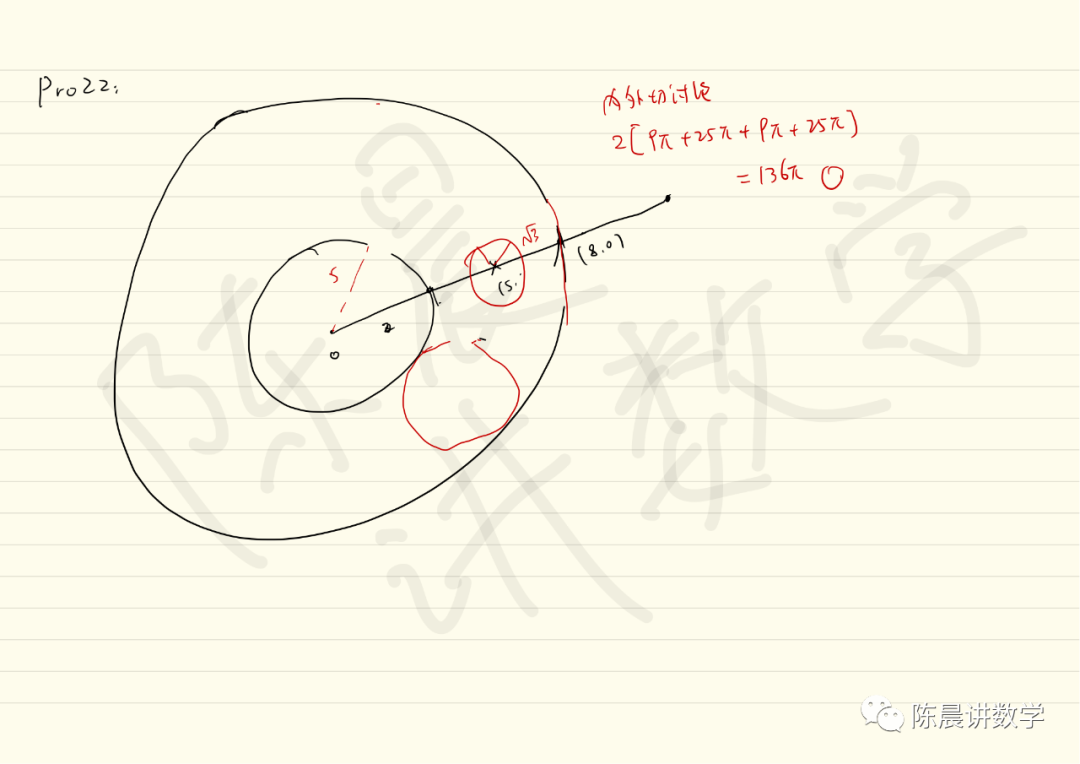 Pro22:
内外切讨论
2[9π+25π+9π+25π]
=136π
√3
(8.0)
5
(5.
2
0
陈晨讲数学
陈晨讲数学